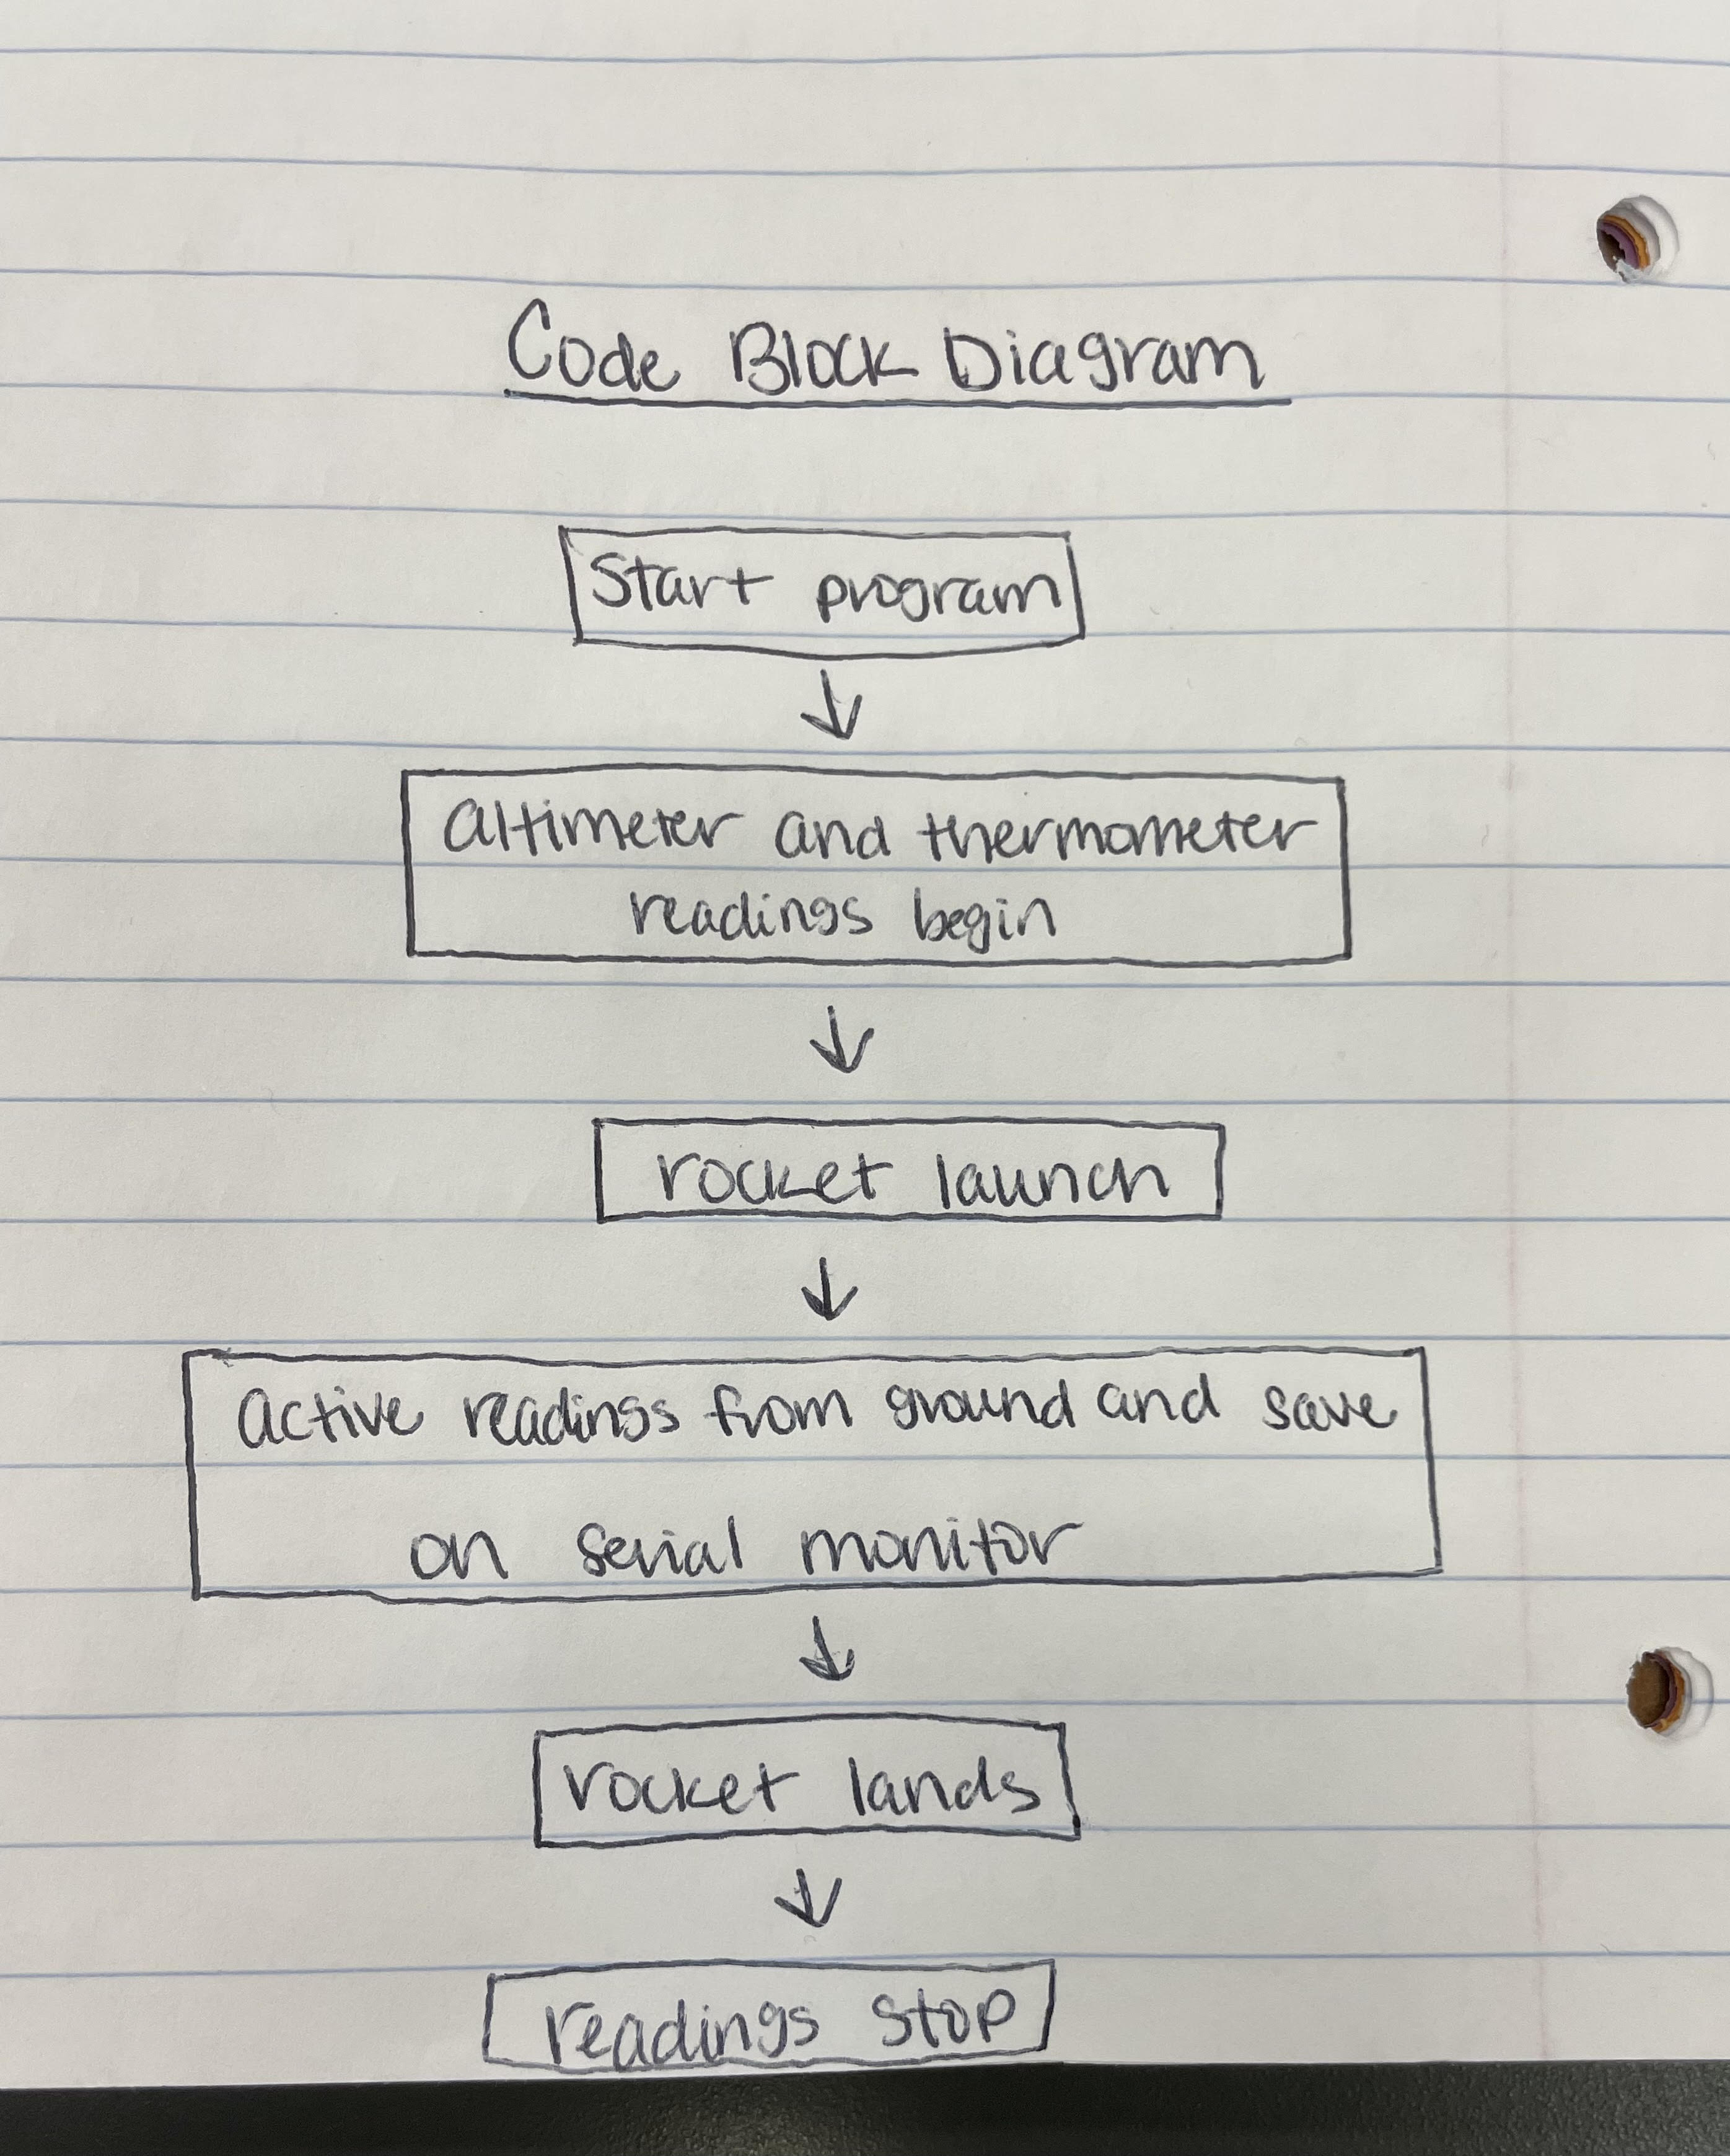 Code Block Diagram
Start program
altimeter and thermometer
readings begin
rocket launch
active readings from ground and save
on serial monitor
rocket lands
readings stop